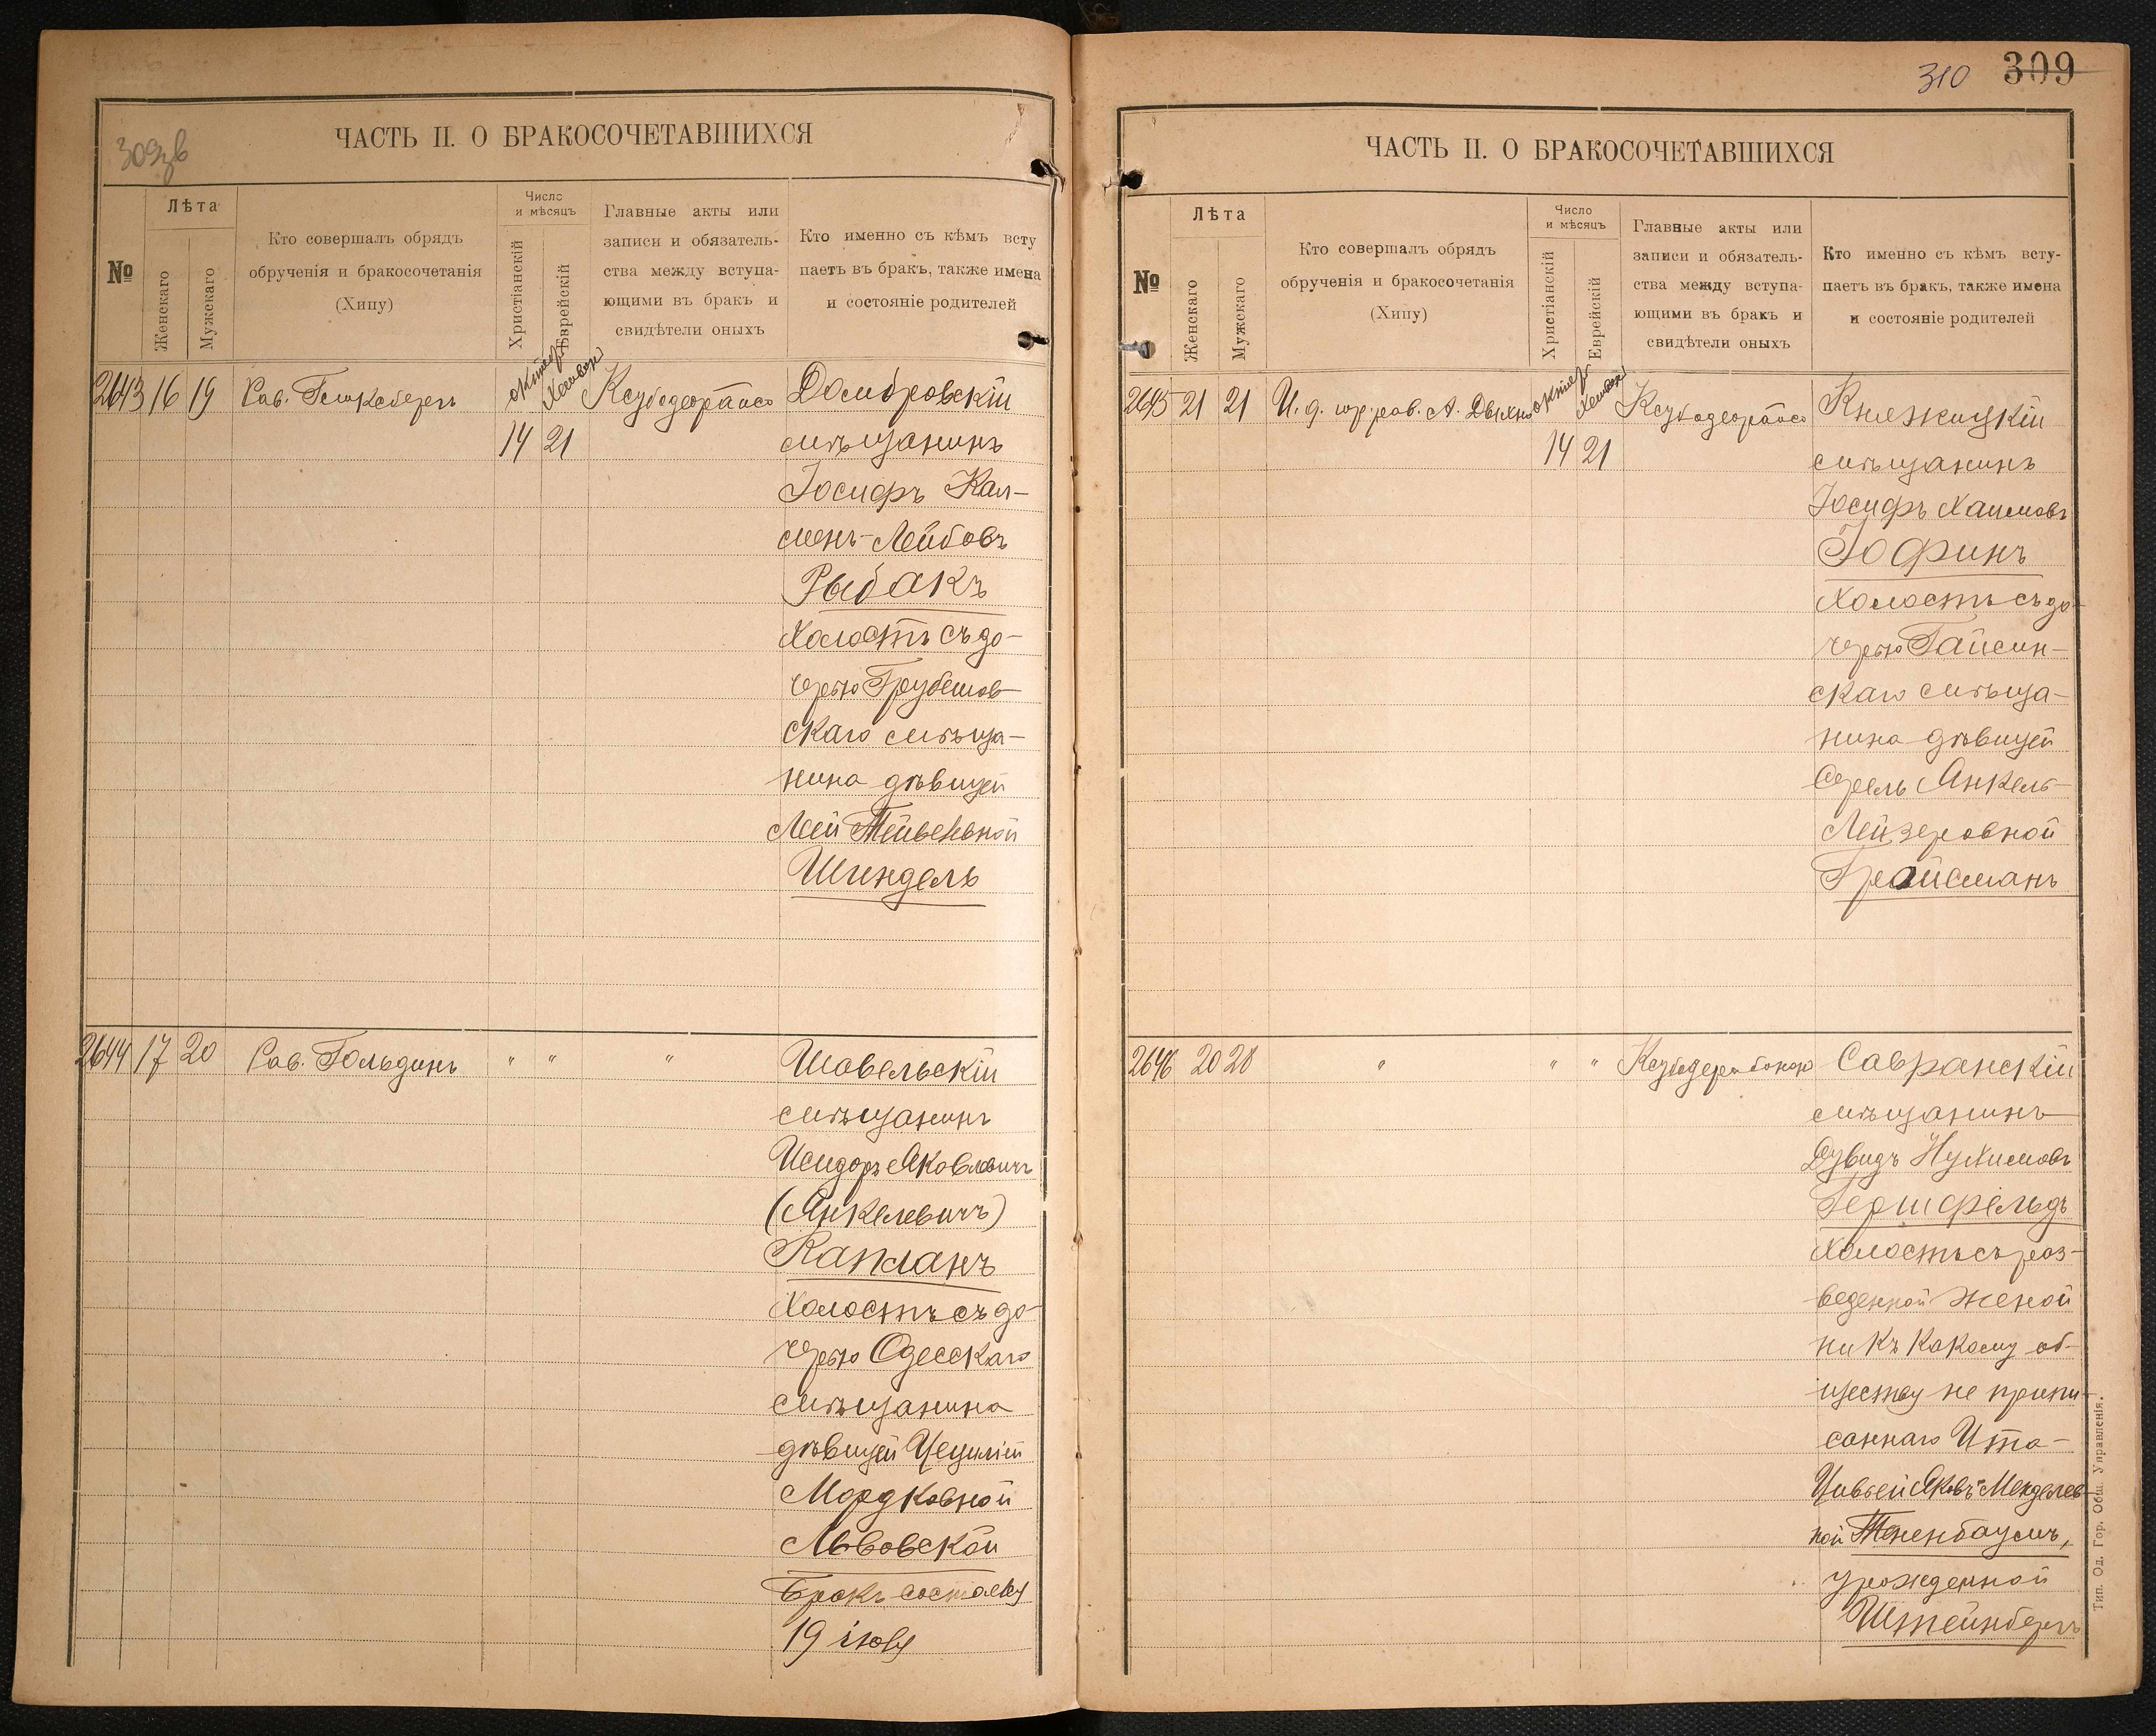 309 об
ЧАСТЬ II. О БРАКОСОЧЕТАВШИХСЯ
№
Лѣта
Женскаго
Мужскаго
Кто совершалъ обрядъ
обрученія и бракосочетанія
(Хипу)
Число
и мѣсяцъ
Христіанскій
Еврейскій
Главные акты или
записи и обязатель-
ства между вступа-
ющими въ бракъ и
свидѣтели оныхъ
Кто именно съ кѣмъ всту
паетъ въ бракъ, также имена
и состояніе родителей
2643 16 19 Рав. октябр Хешван Домбровскій
14 21 мѣщанинъ
Іосифъ Кал-
менъ-Лейбовъ
Рыбакъ
Холостъ съ до-
черью Грубешов-
скаго мѣща-
нина дѣвицей
Леей
Шиндель
2644 17 20 Рав. Гольдинъ " " " Шавельскій
мѣщанинъ
Исидоръ Яковлевичъ
(Янкелевичъ)
Капланъ
Холостъ съ до-
черью Одесскаго
мѣщанина
дѣвицей Цециліей
Мордковной
Львовской
Бракъ состоялся
19 іюля
310 309
ЧАСТЬ II. О БРАКОСОЧЕТАВШИХСЯ
№
Лѣта
Женскаго
Мужскаго
Кто совершалъ обрядъ
обрученія и бракосочетанія
(Хипу)
Число
и мѣсяцъ
Христіанскій
Еврейскій
Главные акты или
записи и обязатель-
ства между вступа-
ющими въ бракъ и
свидѣтели оныхъ
Кто именно съ кѣмъ всту-
паетъ въ бракъ, также имена
и состояніе родителей
2645 21 21 И. д. рав. А. октябр Хешван Княжицкій
14 21 мѣщанинъ
Іосифъ Хаимовъ
Іофинъ
Холостъ съ до-
черью Гайсин-
скаго мѣща-
нина дѣвицей
Янкель-
Лейзеровной
Гройсманъ
2646 20 28 " " " Савранскій
мѣщанинъ
Дувидъ Нухимовъ
Гершфельдъ
Холостъ съ раз-
веденной женой
ни къ какому об-
ществу не припи-
саннаго Ита-
Цивьей Яковъ-Менделев-
ной Тененбаумъ,
урожденной
Штейнбергъ
Тип. Од. Гор. Общ. Управленія.